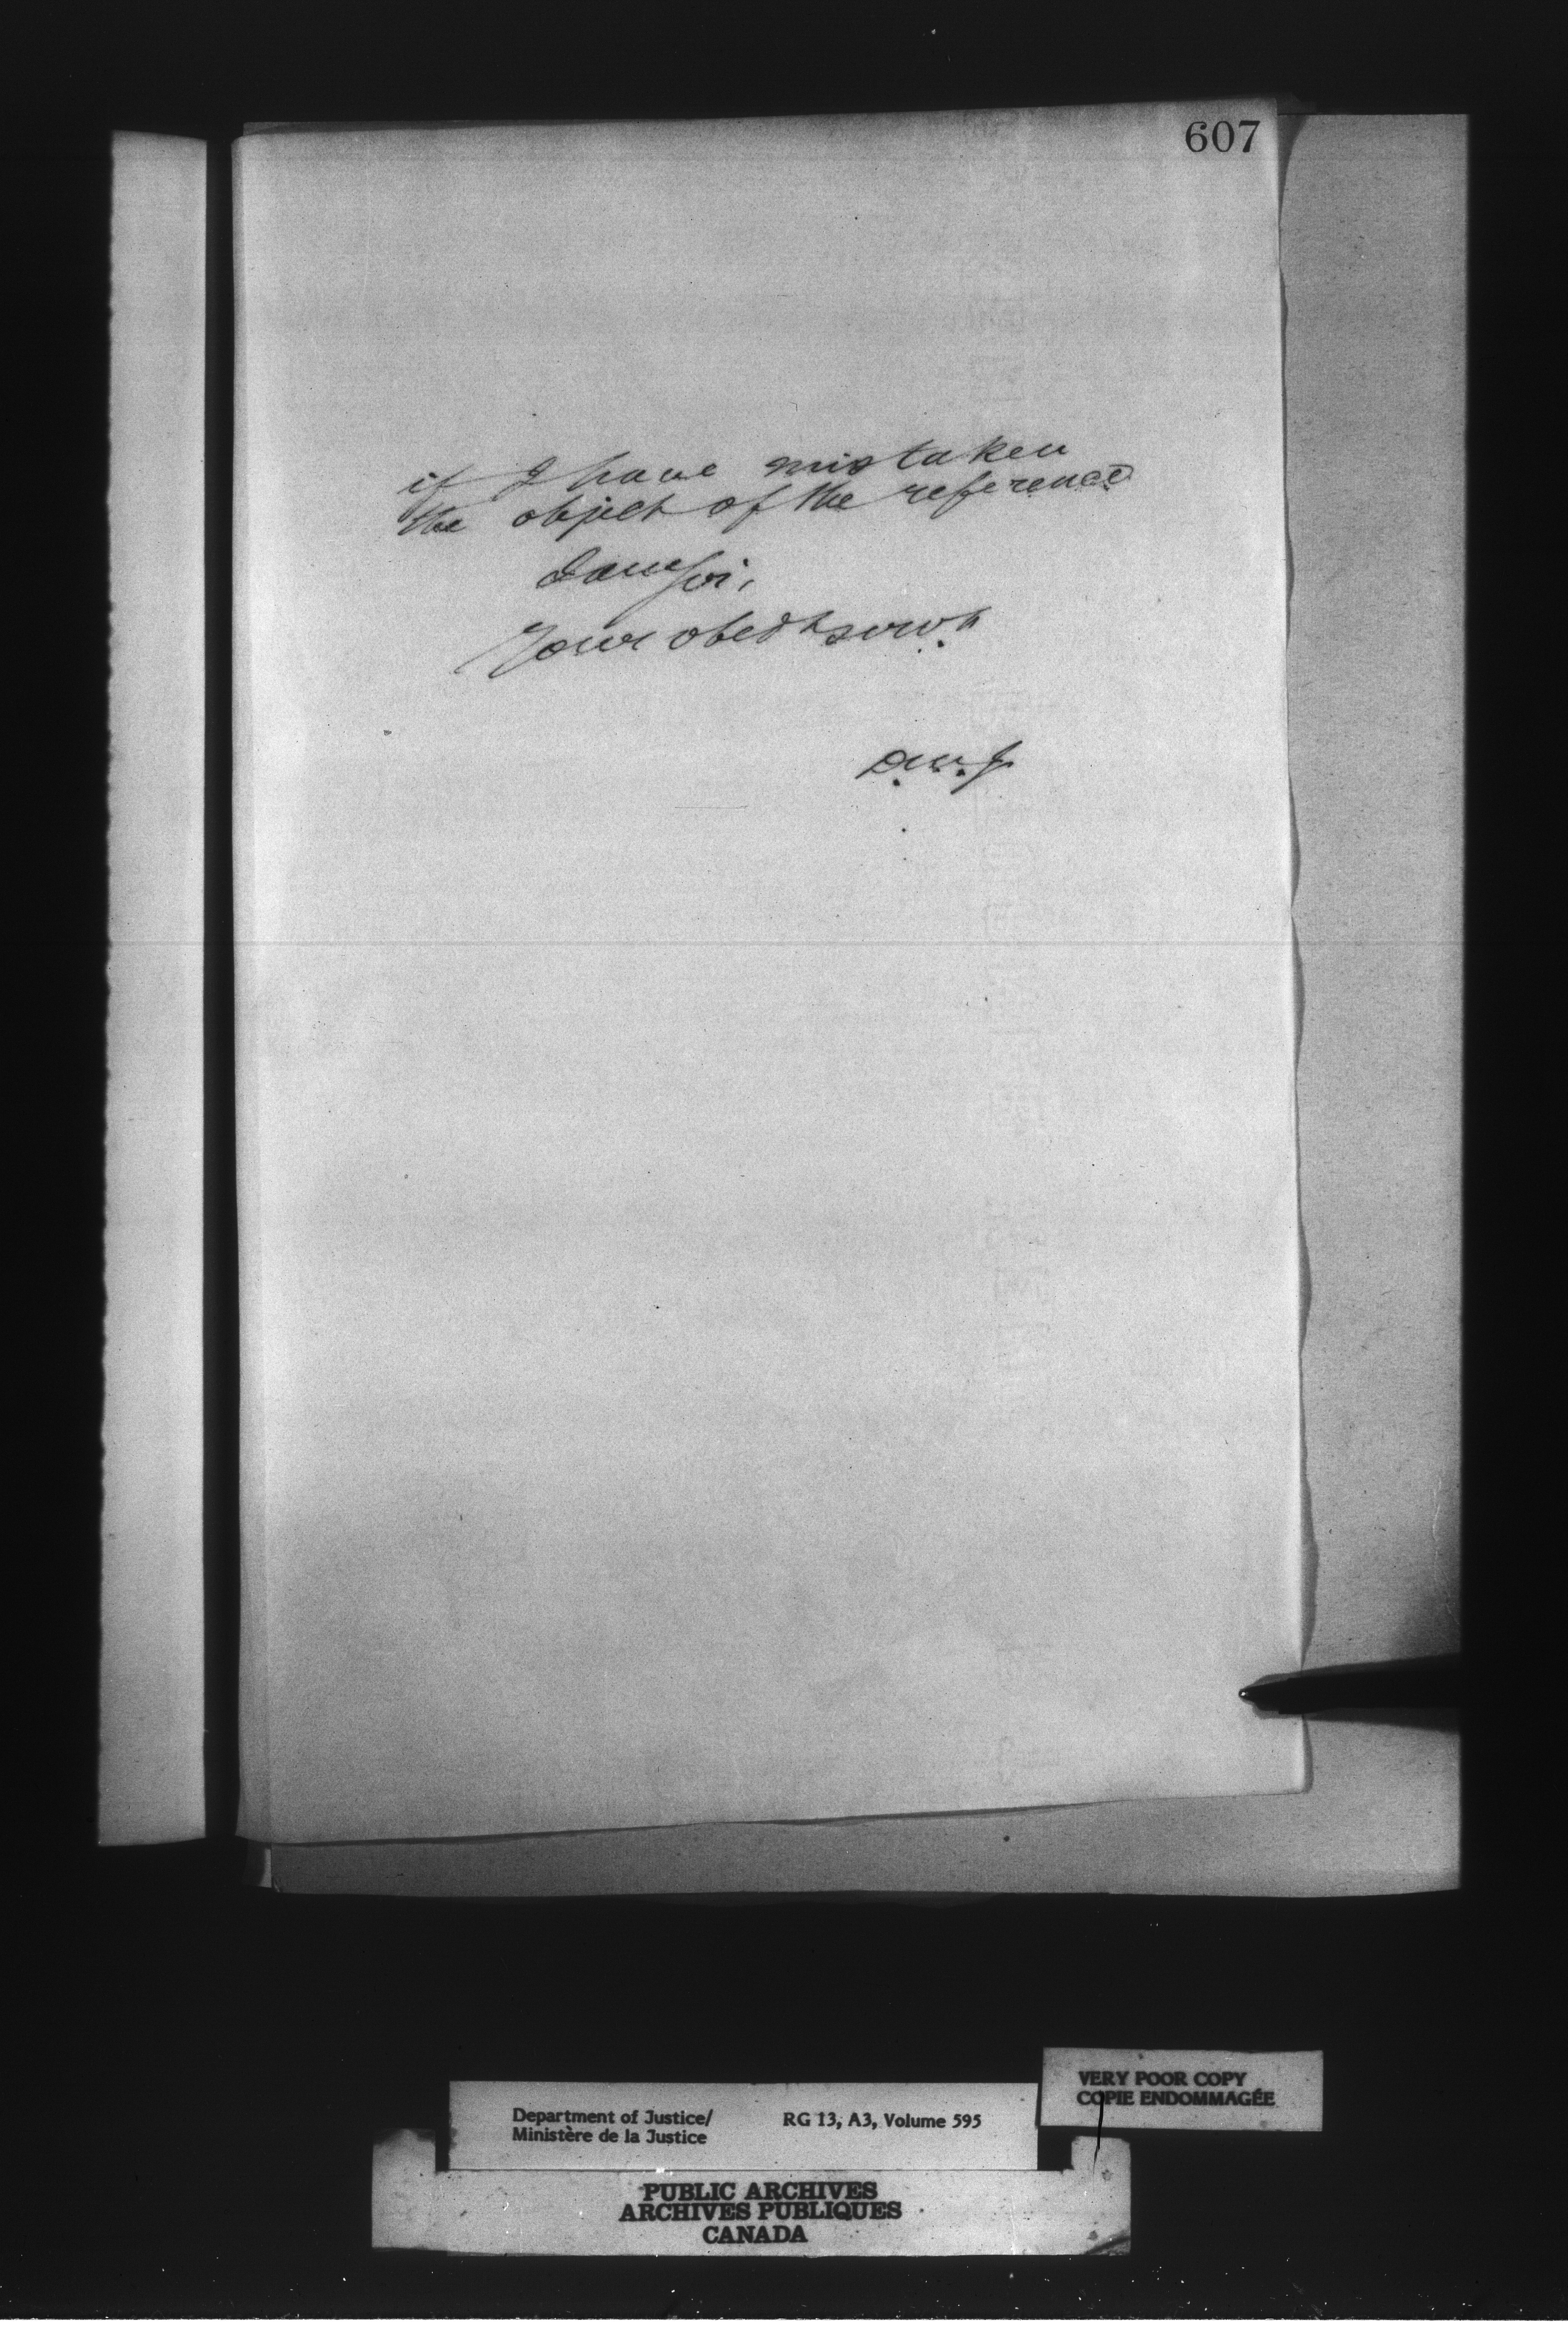 607
if I have mistaken
the object of the reference
I am Sir,
Your obedt servt
D.M.J
VERY POOR COPY
COPIE ENDOMMAGÉE
Department of Justice/
Ministère de la Justice
RG 13, A3, Volume 595
PUBLIC ARCHIVES
ARCHIVES PUBLIQUES
CANADA